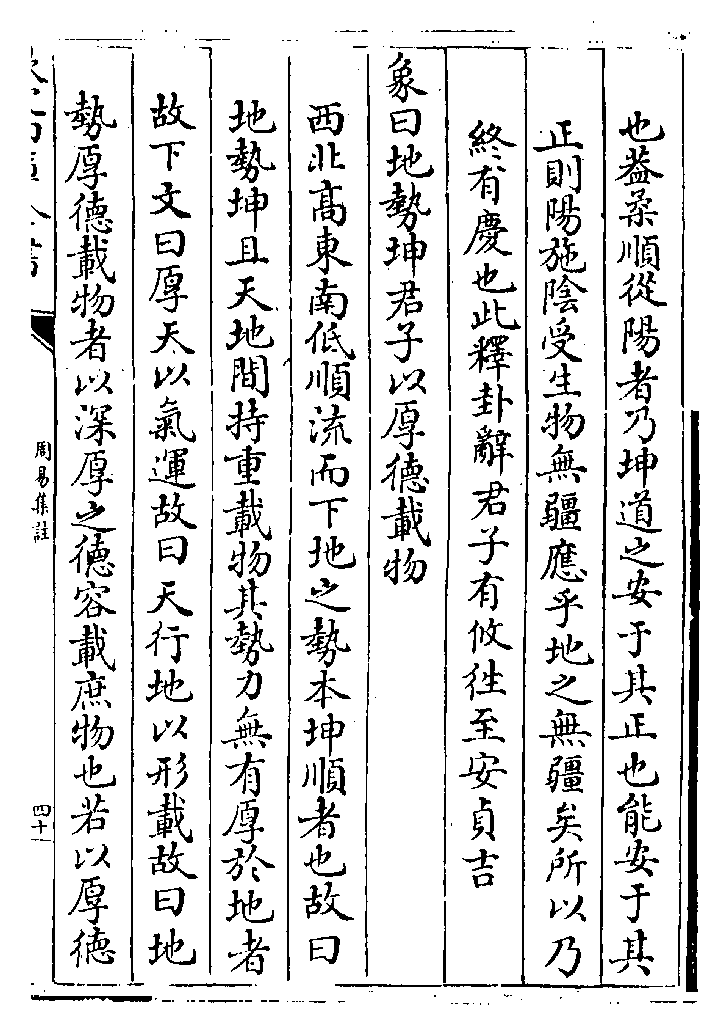 也葢柔順從陽者乃坤道之安于其正也能安于其
正則陽施陰受生物無疆應乎地之無疆矣所以乃
終有慶也此釋卦辭君子有攸徃至安貞吉
象曰地勢坤君子以厚德載物
西北髙東南低順流而下地之勢本坤順者也故曰
地勢坤且天地間持重載物其勢力無有厚於地者
故下文曰厚天以氣運故曰天行地以形載故曰地
勢厚德載物者以深厚之德容載庶物也若以厚德
周易集註
四十一